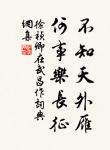 不知天外雁
何事樂長征
徐禎卿在武昌作詞典
網集